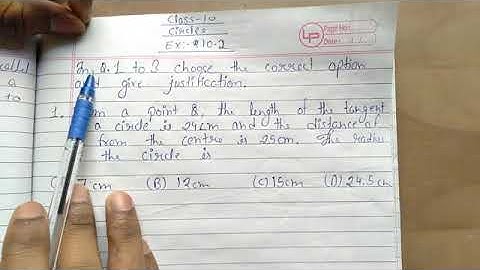 Class-10
Circles
Ex:- 10.2
LP
Page No:
Date:
In Q.1 to 3 choose the correct option
and give justification.
called
a
to
1. a point Q, the length of the tangent
a circle is 24cm and the distance of
from the centre is 25cm. The radius
the circle is
cm (B) 12cm (C) 15cm (D) 24.5cm